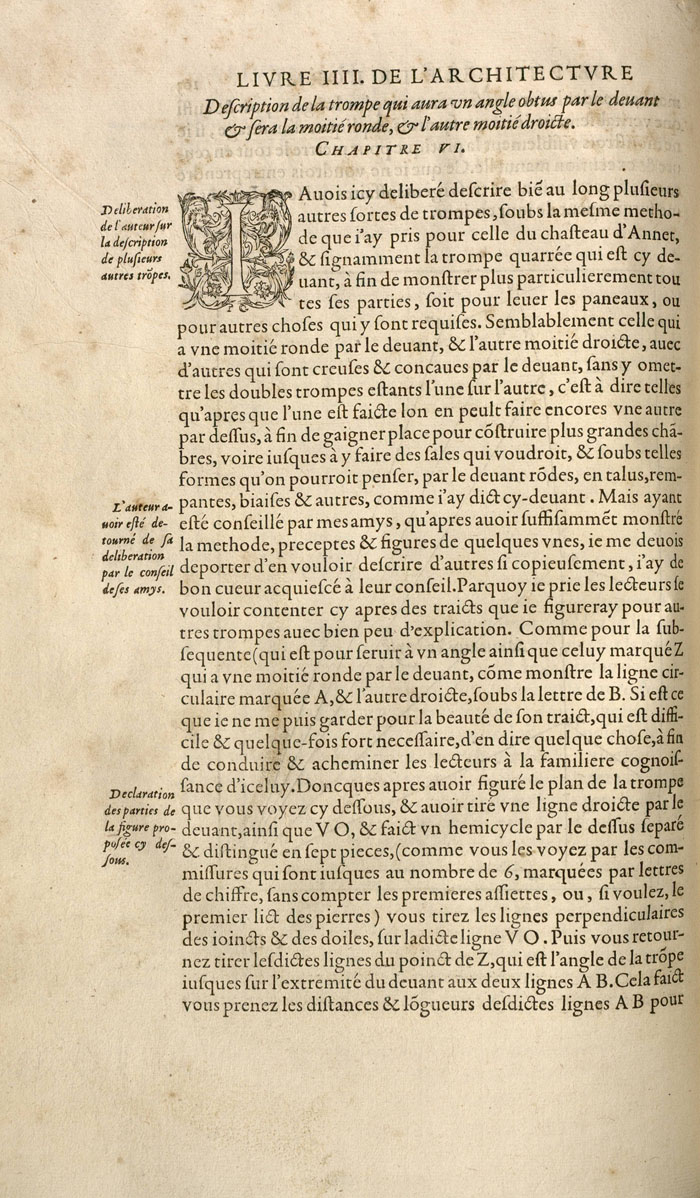 LIVRE IIII. DE L'ARCHITECTVRE
Deſcription de la trompe qui aura vn angle obtus par le deuant
& ſera la moitié ronde, & l'autre moitié droicte.
CHAPITRE VI.
Deliberation
de l'auteur ſur
la deſcription
de pluſieurs
autres trõpes.
IAuois icy deliberé deſcrire biẽ au long pluſieurs
autres ſortes de trompes, ſoubs la meſme metho-
de que i'ay pris pour celle du chaſteau d'Annet,
& ſignamment la trompe quarrée qui eſt cy de-
uant, à fin de monſtrer plus particulierement tou
tes ſes parties, ſoit pour leuer les paneaux, ou
pour autres choſes qui y ſont requiſes. Semblablement celle qui
a vne moitié ronde par le deuant, & l'autre moitié droicte, auec
d'autres qui ſont creuſes & concaues par le deuant, ſans y omet-
tre les doubles trompes eſtants l'une ſur l'autre, c'eſt à dire telles
qu'apres que l'une eſt faicte lon en peult faire encores vne autre
par deſſus, à fin de gaigner place pour cõſtruire plus grandes chã-
bres, voire iuſques à y faire des ſales qui voudroit, & ſoubs telles
formes qu'on pourroit penſer, par le deuant rõdes, en talus, rem-
pantes, biaiſes & autres, comme i'ay dict cy-deuant. Mais ayant
L'auteur a-
uoir eſté de-
tourné de ſa
deliberation
par le conſeil
de ſes amys.
eſté conſeillé par mes amys, qu'apres auoir ſuffiſammẽt monſtré
la methode, preceptes & figures de quelques vnes, ie me deuois
deporter d'en vouloir deſcrire d'autres ſi copieuſement, i'ay de
bon cueur acquieſcé à leur conſeil. Parquoy ie prie les lecteurs ſe
vouloir contenter cy apres des traicts que ie figureray pour au-
tres trompes auec bien peu d'explication. Comme pour la ſub-
ſequente (qui eſt pour ſeruir à vn angle ainſi que celuy marqué Z
qui a vne moitié ronde par le deuant, cõme monſtre la ligne cir-
culaire marquée A, & l'autre droicte, ſoubs la lettre de B. Si eſt ce
que ie ne me puis garder pour la beauté de ſon traict, qui eſt diffi-
cile & quelque-fois fort neceſſaire, d'en dire quelque choſe, à fin
de conduire & acheminer les lecteurs à la familiere cognoiſ-
ſance d'iceluy. Doncques apres auoir figuré le plan de la trompe
Declaration
des parties de
la figure pro-
poſée cy deſ-
ſous.
que vous voyez cy deſſous, & auoir tiré vne ligne droicte par le
deuant, ainſi que V O, & faict vn hemicycle par le deſſus ſeparé
& diſtingué en ſept pieces, (comme vous les voyez par les com-
miſſures qui ſont iuſques au nombre de 6, marquées par lettres
de chiffre, ſans compter les premieres aſſiettes, ou, ſi voulez, le
premier lict des pierres) vous tirez les lignes perpendiculaires
des ioincts & des doiles, ſur ladicte ligne V O. Puis vous retour-
nez tirer leſdictes lignes du poinct de Z, qui eſt l'angle de la trõpe
iuſques ſur l'extremité du deuant aux deux lignes A B. Cela faict
vous prenez les diſtances & lõgueurs deſdictes lignes A B pour